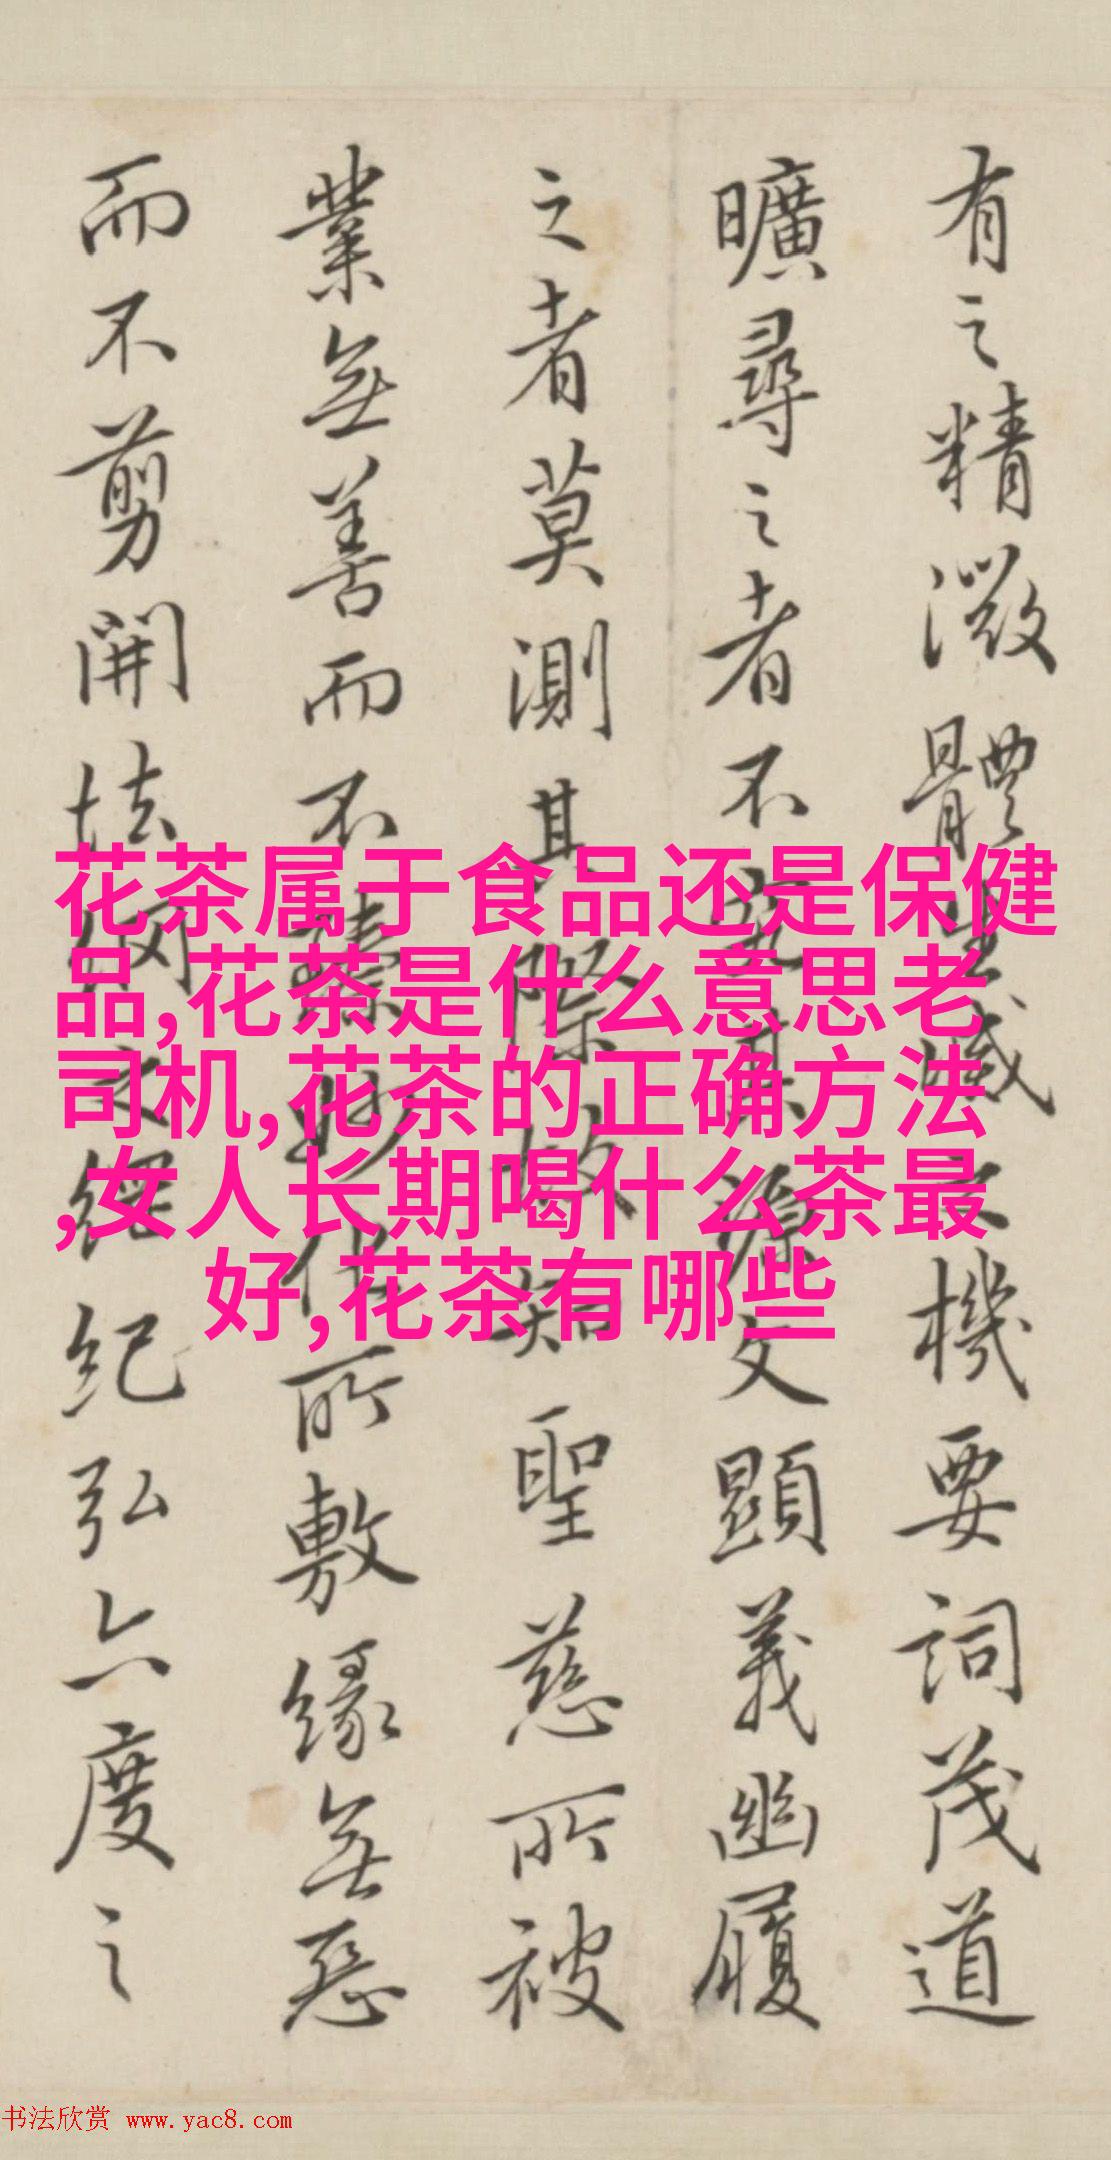 有之精微體生滅之機要詞茂道
曠尋之者不究其源文顯義幽履
之者莫測其際故知聖慈所被
業無善而不臻妙化所敷緣無惡
而不剪開法網之綱紀弘六度之
花茶属于食品还是保健
品,花茶是什么意思老
司机,花茶的正确方法
,女人长期喝什么茶最
好,花茶有哪些
书法欣赏 www.yac8.com